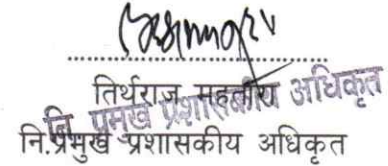 तिर्थराज भट्टराई
नि. प्रमुख प्रशासकीय अधिकृत
नि.प्रमुख प्रशासकीय अधिकृत